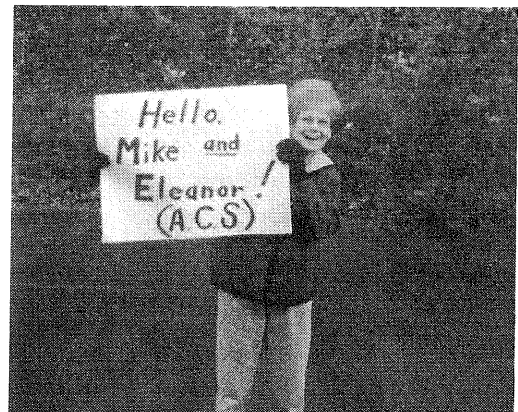 Hello,
Mike and
Eleanor!
(ACS)